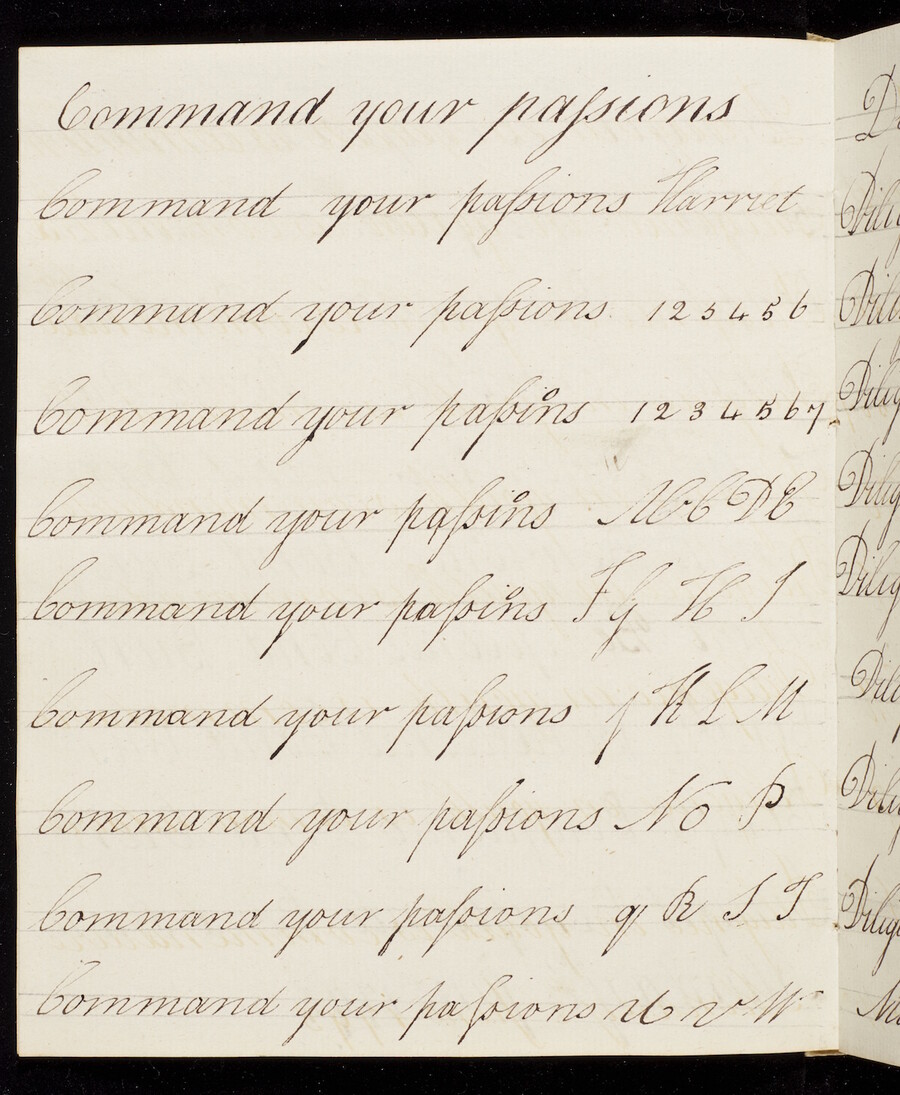 Command your paſsions
Command your paſsions Harriet
Command your paſsions. 1 2 3 4 5 6
Command your paſsins 1 2 3 4 5 6 7
Command your paſsins A B C D E
Command your paſsins F G H I
Command your paſsions j K L M
Command your paſsions N O P
Command your paſsions q R S T
Command your paſsions U V W